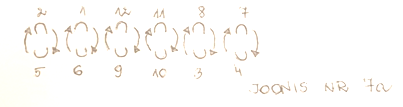 2 1 12 11 8 7
5 6 9 10 3 4
JOONIS NR 7a